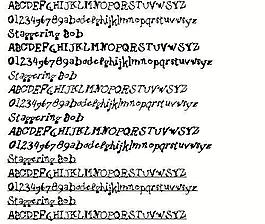 ABCDEFGHIJKLMNOPQRSTUVWSYZ
0123496789abcdefghijklmnopqrstuvwsyz
Staggering Bob
ABCDEFGHIJKLMNOPQRSTUVWSYZ
0123496789abcdefghijklmnopqrstuvwsyz
Staggering Bob
ABCDEFGHIJKLMNOPQRSTUVWSYZ
0123496789abcdefghijklmnopqrstuvwsyz
Staggering Bob
ABCDEFGHIJKLMNOPQRSTUVWSYZ
0123496789abcdefghijklmnopqrstuvwsyz
Staggering Bob
ABCDEFGHIJKLMNOPQRSTUVWSYZ
0123496789abcdefghijklmnopqrstuvwsyz
Staggering Bob
ABCDEFGHIJKLMNOPQRSTUVWSYZ